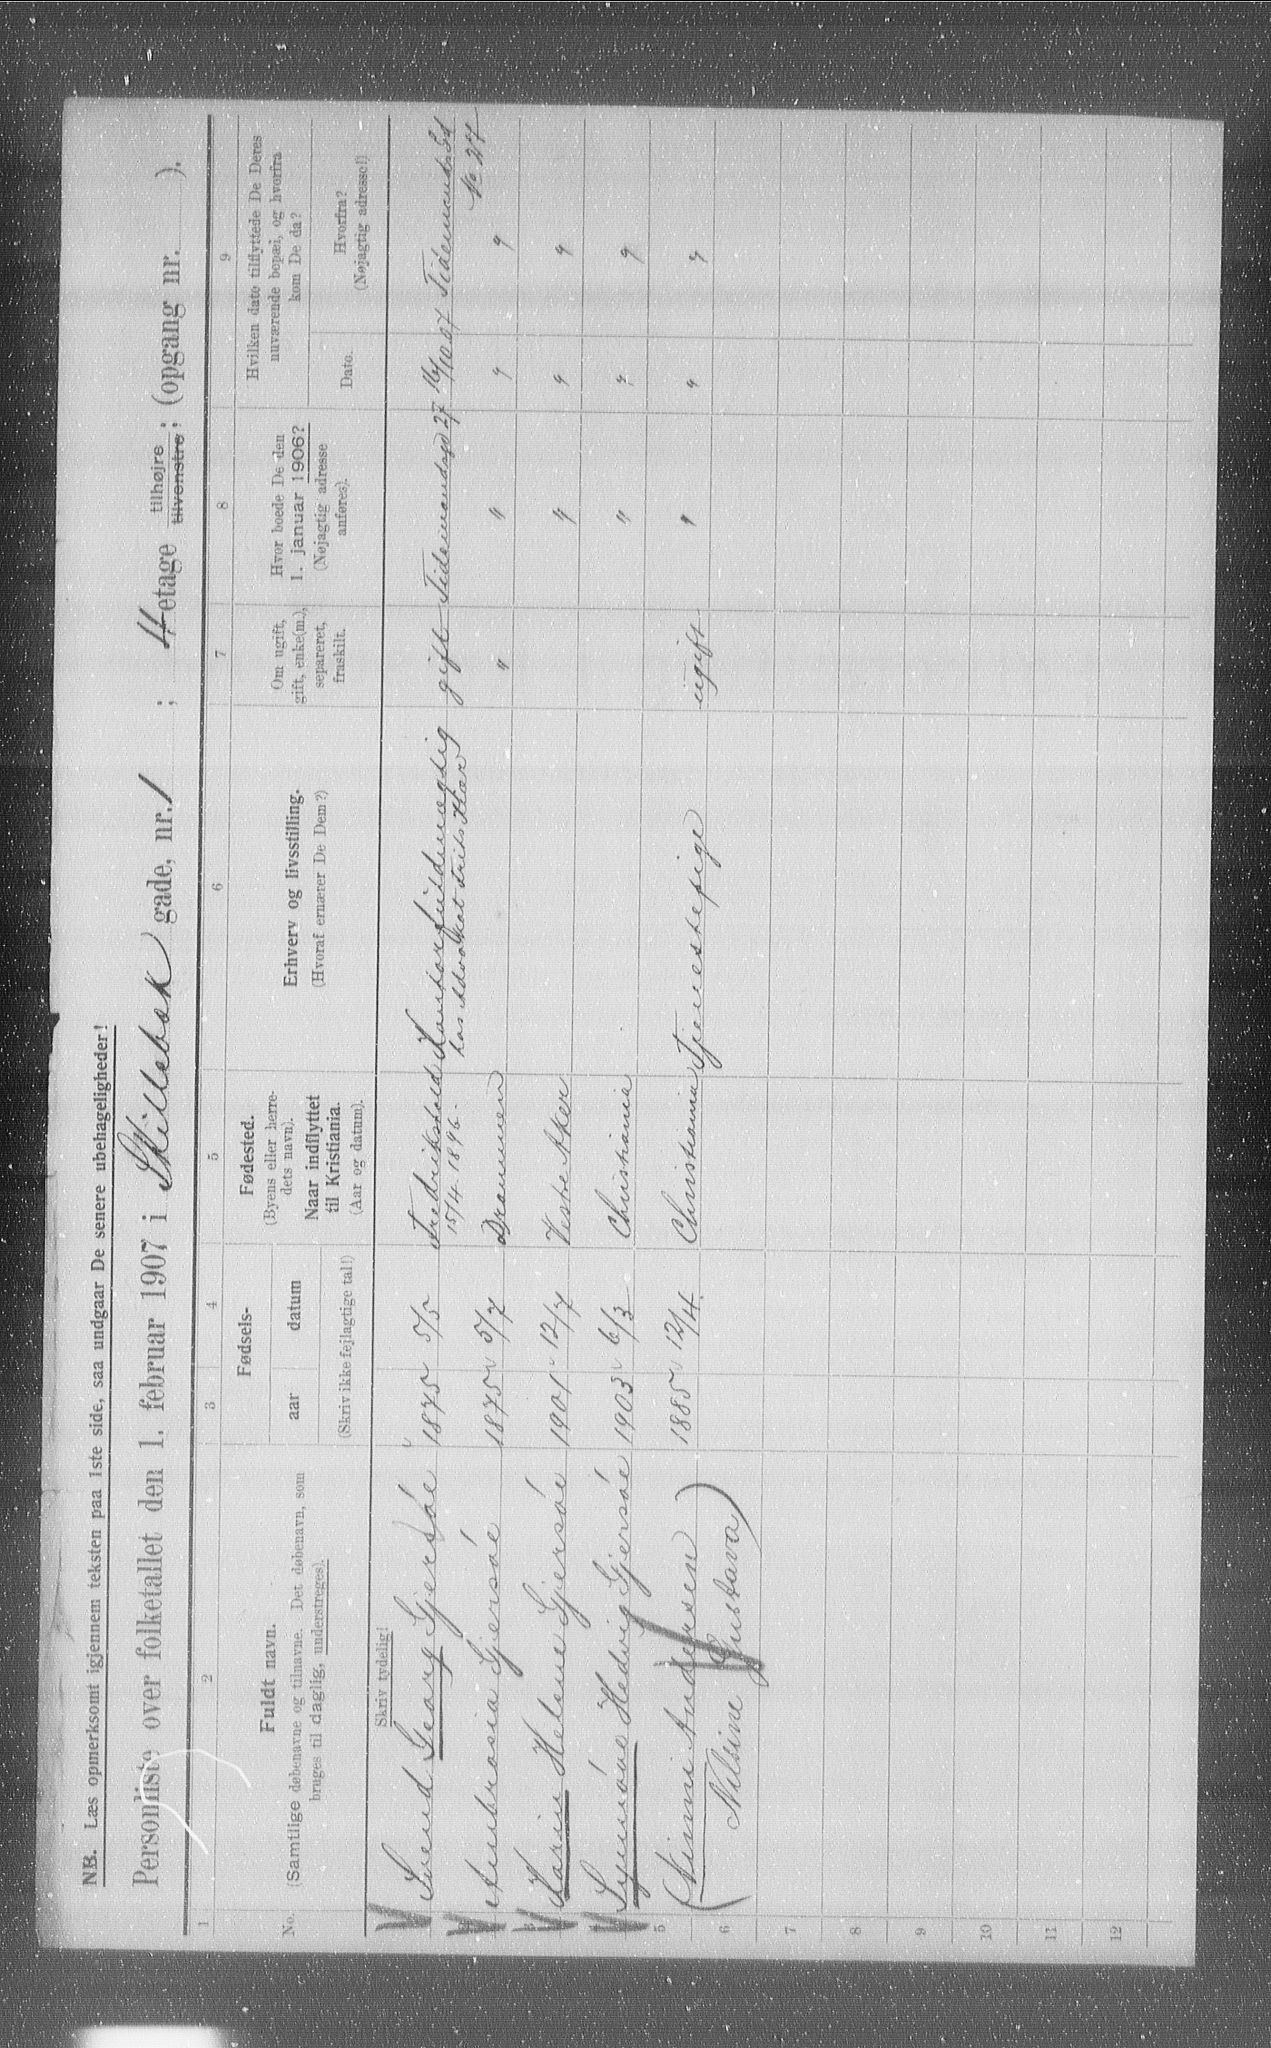 NB. Læs opmerksomt igjennem teksten paa 1ste side, saa undgaar De senere ubehageligheder!
Personliste over folketallet den 1. februar 1907 i Skillebæk gade, nr. 1 ; 4 etage tilhøjre tilvenstre; (opgang nr. ).
1 2 3 4 5 6 7 8 9
No.
Fuldt navn.
(Samtlige døbenavne og tilnavne. Det døbenavn, som
bruges til daglig, understreges).
Fødsels-
aar datum
(Skriv ikke fejlagtige tal!)
Fødested.
(Byens eller herre-
dets navn).
Naar indflyttet
til Kristiania.
(Aar og datum).
Erhverv og livsstilling.
(Hvoraf ernærer De Dem?)
Om ugift,
gift, enke(m.),
separeret,
fraskilt.
Hvor boede De den
1. januar 1906?
(Nøjagtig adresse
anføres).
Hvilken dato tilflyttede De Deres
nuværende bopæl, og hvorfra
kom De da?
Dato.
Hvorfra?
(Nøjagtig adresse!)
Skriv tydelig!
Svend Georg Gjersøe 1875 5/5 Fredrikstad Kontorfuldmægtig gift Tidemandsgd 27 16/10 07 Tidemandsgd
15/4 1896. hos Advokat No 27
Ambrosia Gjersøe 1875 5/7 Drammen " " " "
Karin Helene Gjersøe 1901 12/7 Vestre Aker " " "
3
Synnøve Hedvig Gjersøe 1903 6/3 Christiania " " "
5 (Minni Andersen 1885 12/4 Christiania Tjenestepige ugift " " "
6 Nilsine Gustava)
7
8
9
10
11
12